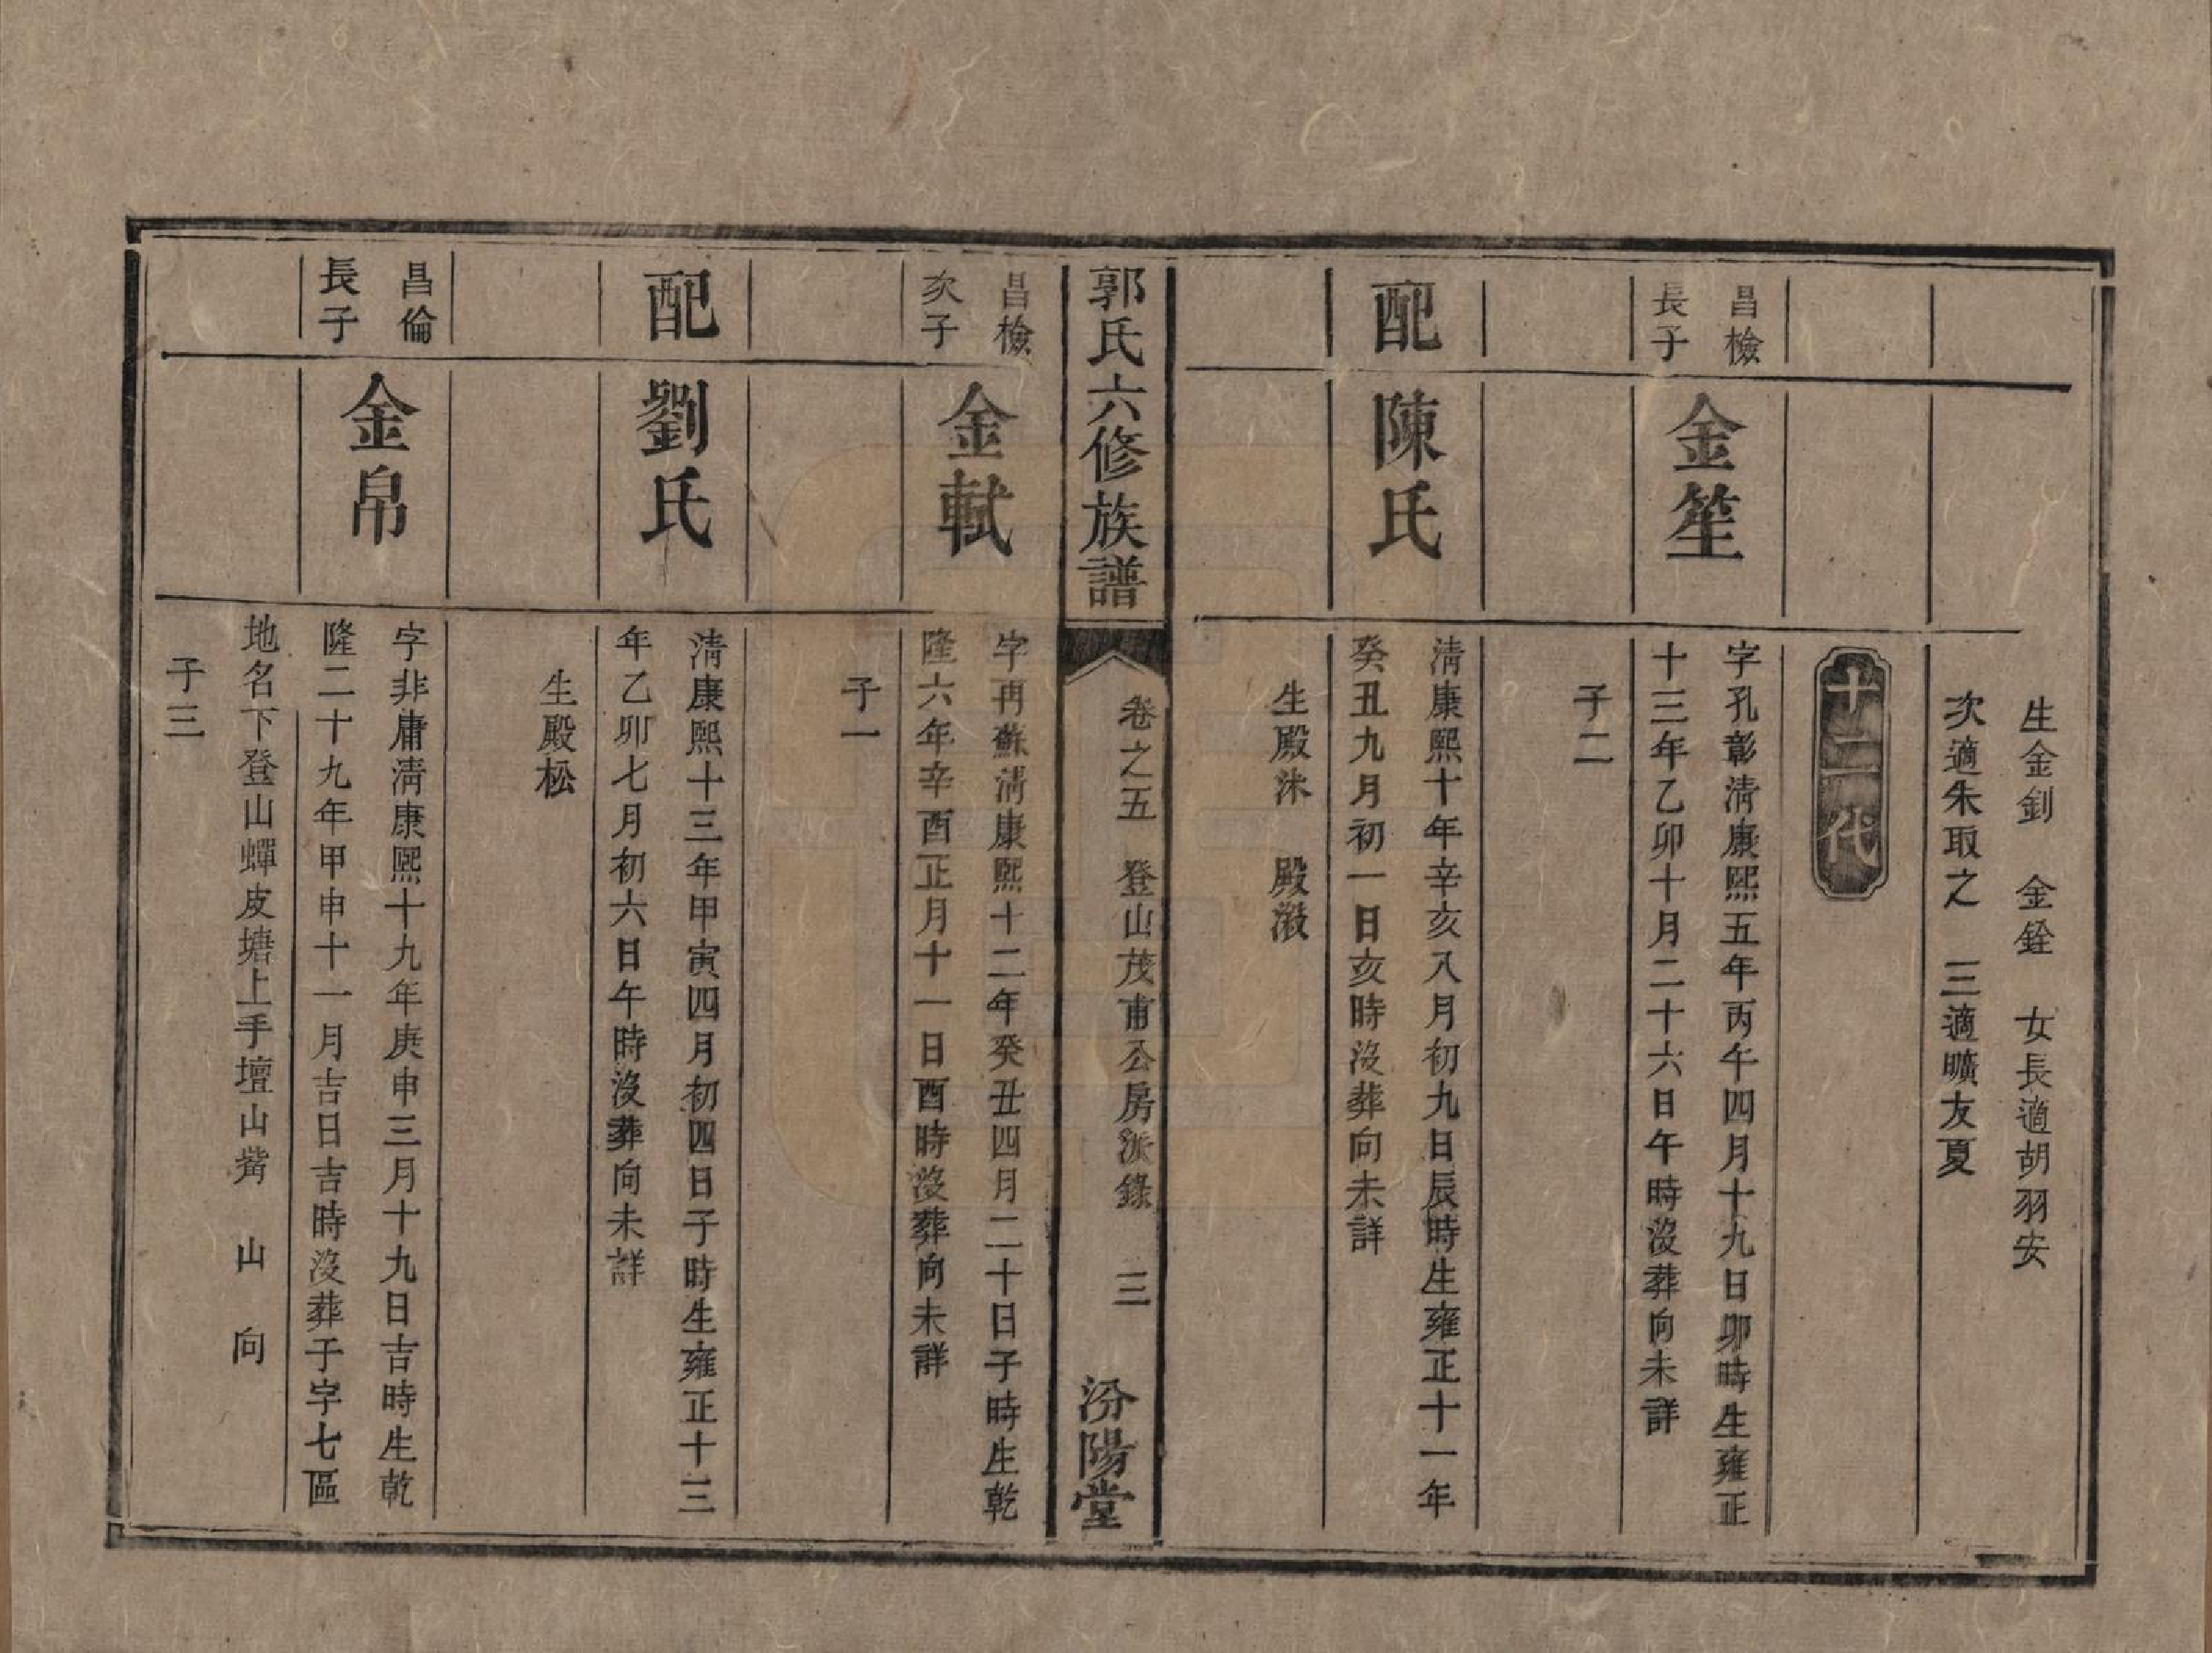 生金釗　金銓　女長適胡羽安
次適朱取之　三適曠友夏
十二代
昌檢
長子
金笙
字孔彰清康熙五年丙午四月十九日卯時生雍正
十三年乙卯十月二十六日午時沒葬向未詳
子二
配
陳氏
清康熙十年辛亥八月初九日辰時生雍正十一年
癸丑九月初一日亥時沒葬向未詳
生殿洙　殿潊
郭氏六修族譜
卷之五　登山茂甫公房派錄　三
汾陽堂
昌檢
次子
金軾
字再蘇清康熙十二年癸丑四月二十日子時生乾
隆六年辛酉正月十一日酉時沒葬向未詳
子一
配
劉氏
清康熙十三年甲寅四月初四日子時生雍正十三
年乙卯七月初六日午時沒葬向未詳
生殿松
昌倫
長子
金帛
字非庸清康熙十九年庚申三月十九日吉時生乾
隆二十九年甲申十一月吉日吉時沒葬子字七區
地名下登山蟬皮塘上手壇山觜　山　向
子三